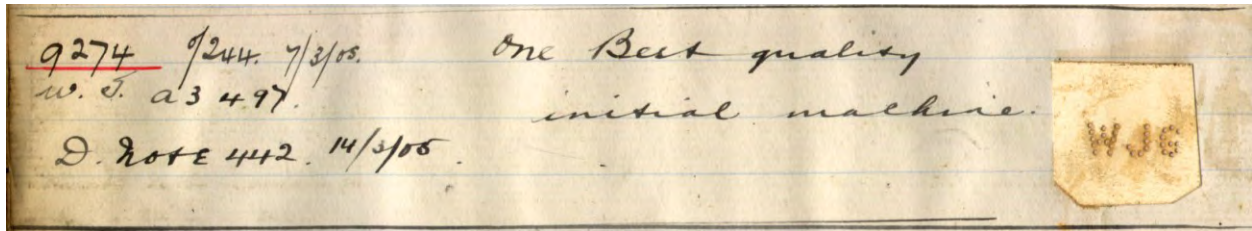 9274 O/244. 7/3/05. One Best quality
W. T. a 3 497. initial machine.
D. Note 442. 14/3/05.
WJG